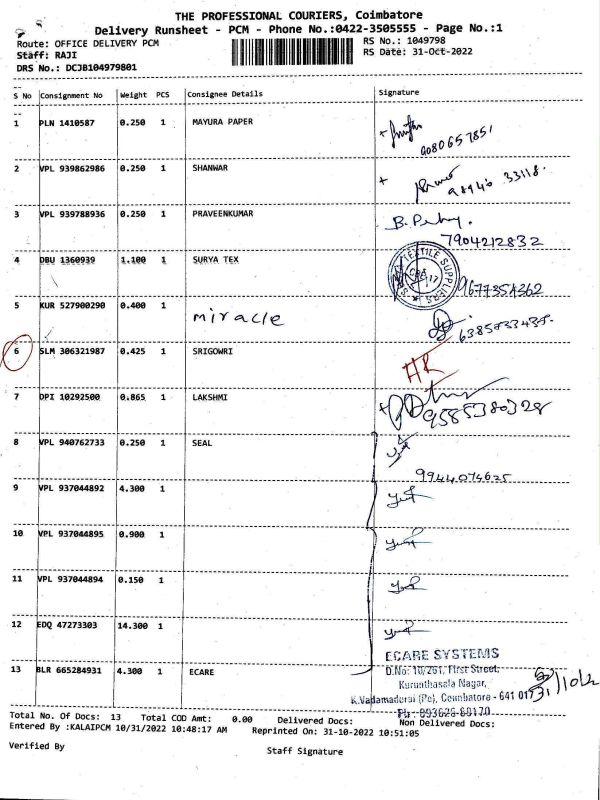 THE PROFESSIONAL COURIERS, Coimbatore
Delivery Runsheet - PCM - Phone No.:0422-3505555 - Page No.:1
Route: OFFICE DELIVERY PCM RS No.: 1049798
Staff: RAJI RS Date: 31-Oct-2022
DRS No.: DCJB104979801
S No Consignment No Weight PCS Consignee Details Signature
1 PLN 1410587 0.250 1 MAYURA PAPER
9080657851
2 VPL 939862986 0.250 1 SHANWAR
33118.
3 VPL 939788936 0.250 1 PRAVEENKUMAR B.
7904212832
4 DBU 1360939 1.100 1 SURYA TEX TEXTILE SUPPLIERS
9677354362
5 KUR 527900290 0.400 1 miracle
6 SLM 306321987 0.425 1 SRIGOWRI
7 DPI 10292500 0.865 1 LAKSHMI
9585380328
8 VPL 940762733 0.250 1 SEAL
9944074625
9 VPL 937044892 4.300 1
10 VPL 937044895 0.900 1
11 VPL 937044894 0.150 1
12 EDQ 47273303 14.300 1
ECARE SYSTEMS
13 BLR 665284931 4.300 1 ECARE D.No: 10/261, First Street,
Kurunthasala Nagar,
K.Vadamadurai (Po), Coimbatore - 641 017
31/10/22
Total No. Of Docs: 13 Total COD Amt: 0.00 Delivered Docs: Non Delivered Docs:
Entered By :KALAIPCM 10/31/2022 10:48:17 AM Reprinted On: 31-10-2022 10:51:05
Verified By Staff Signature